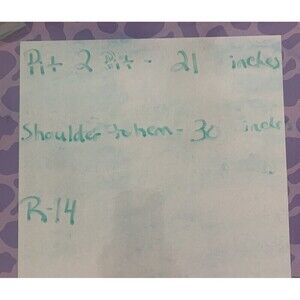 Pit 2 Pit - 21 inches
Shoulder to hem - 30 inches
R-14